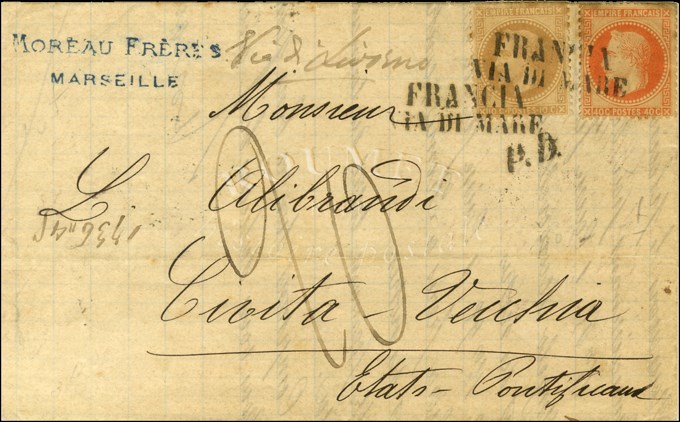 MOREAU FRÈRES
MARSEILLE
Via di Livorno
EMPIRE FRANC
EMPIRE FRANC
40C POSTES 40C
FRANCIA
VIA DI MARE
FRANCIA
IA DI MARE
P.D.
Monsieur
L. Alibrandi
Civita-Vecchia
Etats-Pontificaux
ROUMET